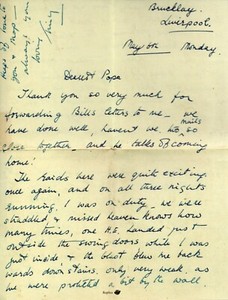 Brucklay,
Liverpool.
May 5th Monday.
Dearest Papa
Thank you so very much for
forwarding Bill's letters to me — we
mails
have done well, haven't we, so
close together, and he talks of coming
home!
The raids here were quite exciting
once again, and on all three nights
running, I was on duty, we were
straddled & missed heaven knows how
many times, one H.E. landed just
outside the swing doors while I was
just inside & the blast blew me back
wards down stairs, only very weak, as
we were protected a bit by the wall.
Heaps of love to
you & Mum
always your
loving